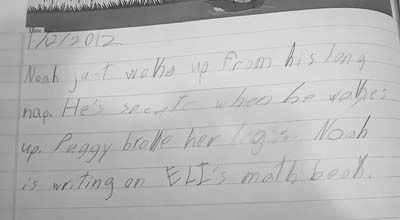 Date
1/2/2012
Noah just woke up from his long
nap. He's when he wakes
up. Puggy broke her Noah
is writing on ELI's math book.